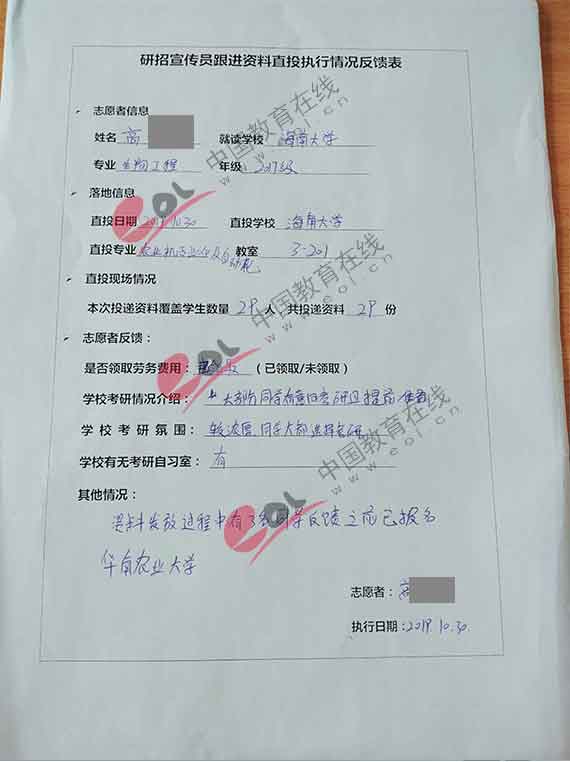 研招宣传员跟进资料直投执行情况反馈表
志愿者信息
姓名 高 就读学校 海南大学
专业 生物工程 年级 2017级
落地信息
直投日期 2019.10.30 直投学校 海南大学
直投专业 农业机械化及自动化 教室 3-201
直投现场情况
本次投递资料覆盖学生数量 29 人 共投递资料 29 份
志愿者反馈:
是否领取劳务费用: (已领取/未领取)
学校考研情况介绍: 大部分同学有意向考研且提前准备
学校考研氛围: 较浓厚,同学大都选择考研
学校有无考研自习室: 有
其他情况:
资料发放过程中有 同学反馈之前已报名
华南农业大学
志愿者: 高
执行日期: 2019.10.30.
eol 中国教育在线
www.eol.cn
eol 中国教育在线
www.eol.cn
eol 中国教育在线
www.eol.cn